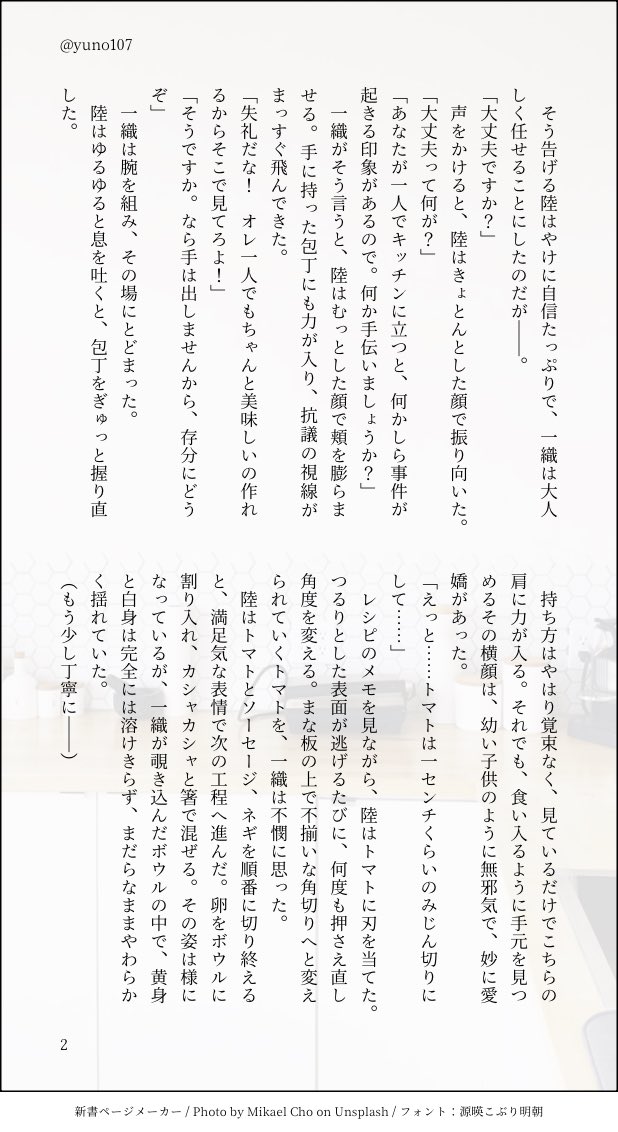 @yuno107
　そう告げる陸はやけに自信たっぷりで、一織は大人
しく任せることにしたのだが――。
「大丈夫ですか？」
　声をかけると、陸はきょとんとした顔で振り向いた。
「大丈夫って何が？」
「あなたが一人でキッチンに立つと、何かしら事件が
起きる印象があるので。何か手伝いましょうか？」
　一織がそう言うと、陸はむっとした顔で頬を膨らま
せる。手に持った包丁にも力が入り、抗議の視線が
まっすぐ飛んできた。
「失礼だな！　オレ一人でもちゃんと美味しいの作れ
るからそこで見てろよ！」
「そうですか。なら手は出しませんから、存分にどう
ぞ」
　一織は腕を組み、その場にとどまった。
　陸はゆるゆると息を吐くと、包丁をぎゅっと握り直
した。
　持ち方はやはり覚束なく、見ているだけでこちらの
肩に力が入る。それでも、食い入るように手元を見つ
めるその横顔は、幼い子供のように無邪気で、妙に愛
嬌があった。
「えっと……トマトは一センチくらいのみじん切りに
して……」
　レシピのメモを見ながら、陸はトマトに刃を当てた。
つるりとした表面が逃げるたびに、何度も押さえ直し
角度を変える。まな板の上で不揃いな角切りへと変え
られていくトマトを、一織は不憫に思った。
　陸はトマトとソーセージ、ネギを順番に切り終える
と、満足気な表情で次の工程へ進んだ。卵をボウルに
割り入れ、カシャカシャと箸で混ぜる。その姿は様に
なっているが、一織が覗き込んだボウルの中で、黄身
と白身は完全には溶けきらず、まだらなままやわらか
く揺れていた。
（もう少し丁寧に――）
2
新書ページメーカー / Photo by Mikael Cho on Unsplash / フォント：源暎こぶり明朝